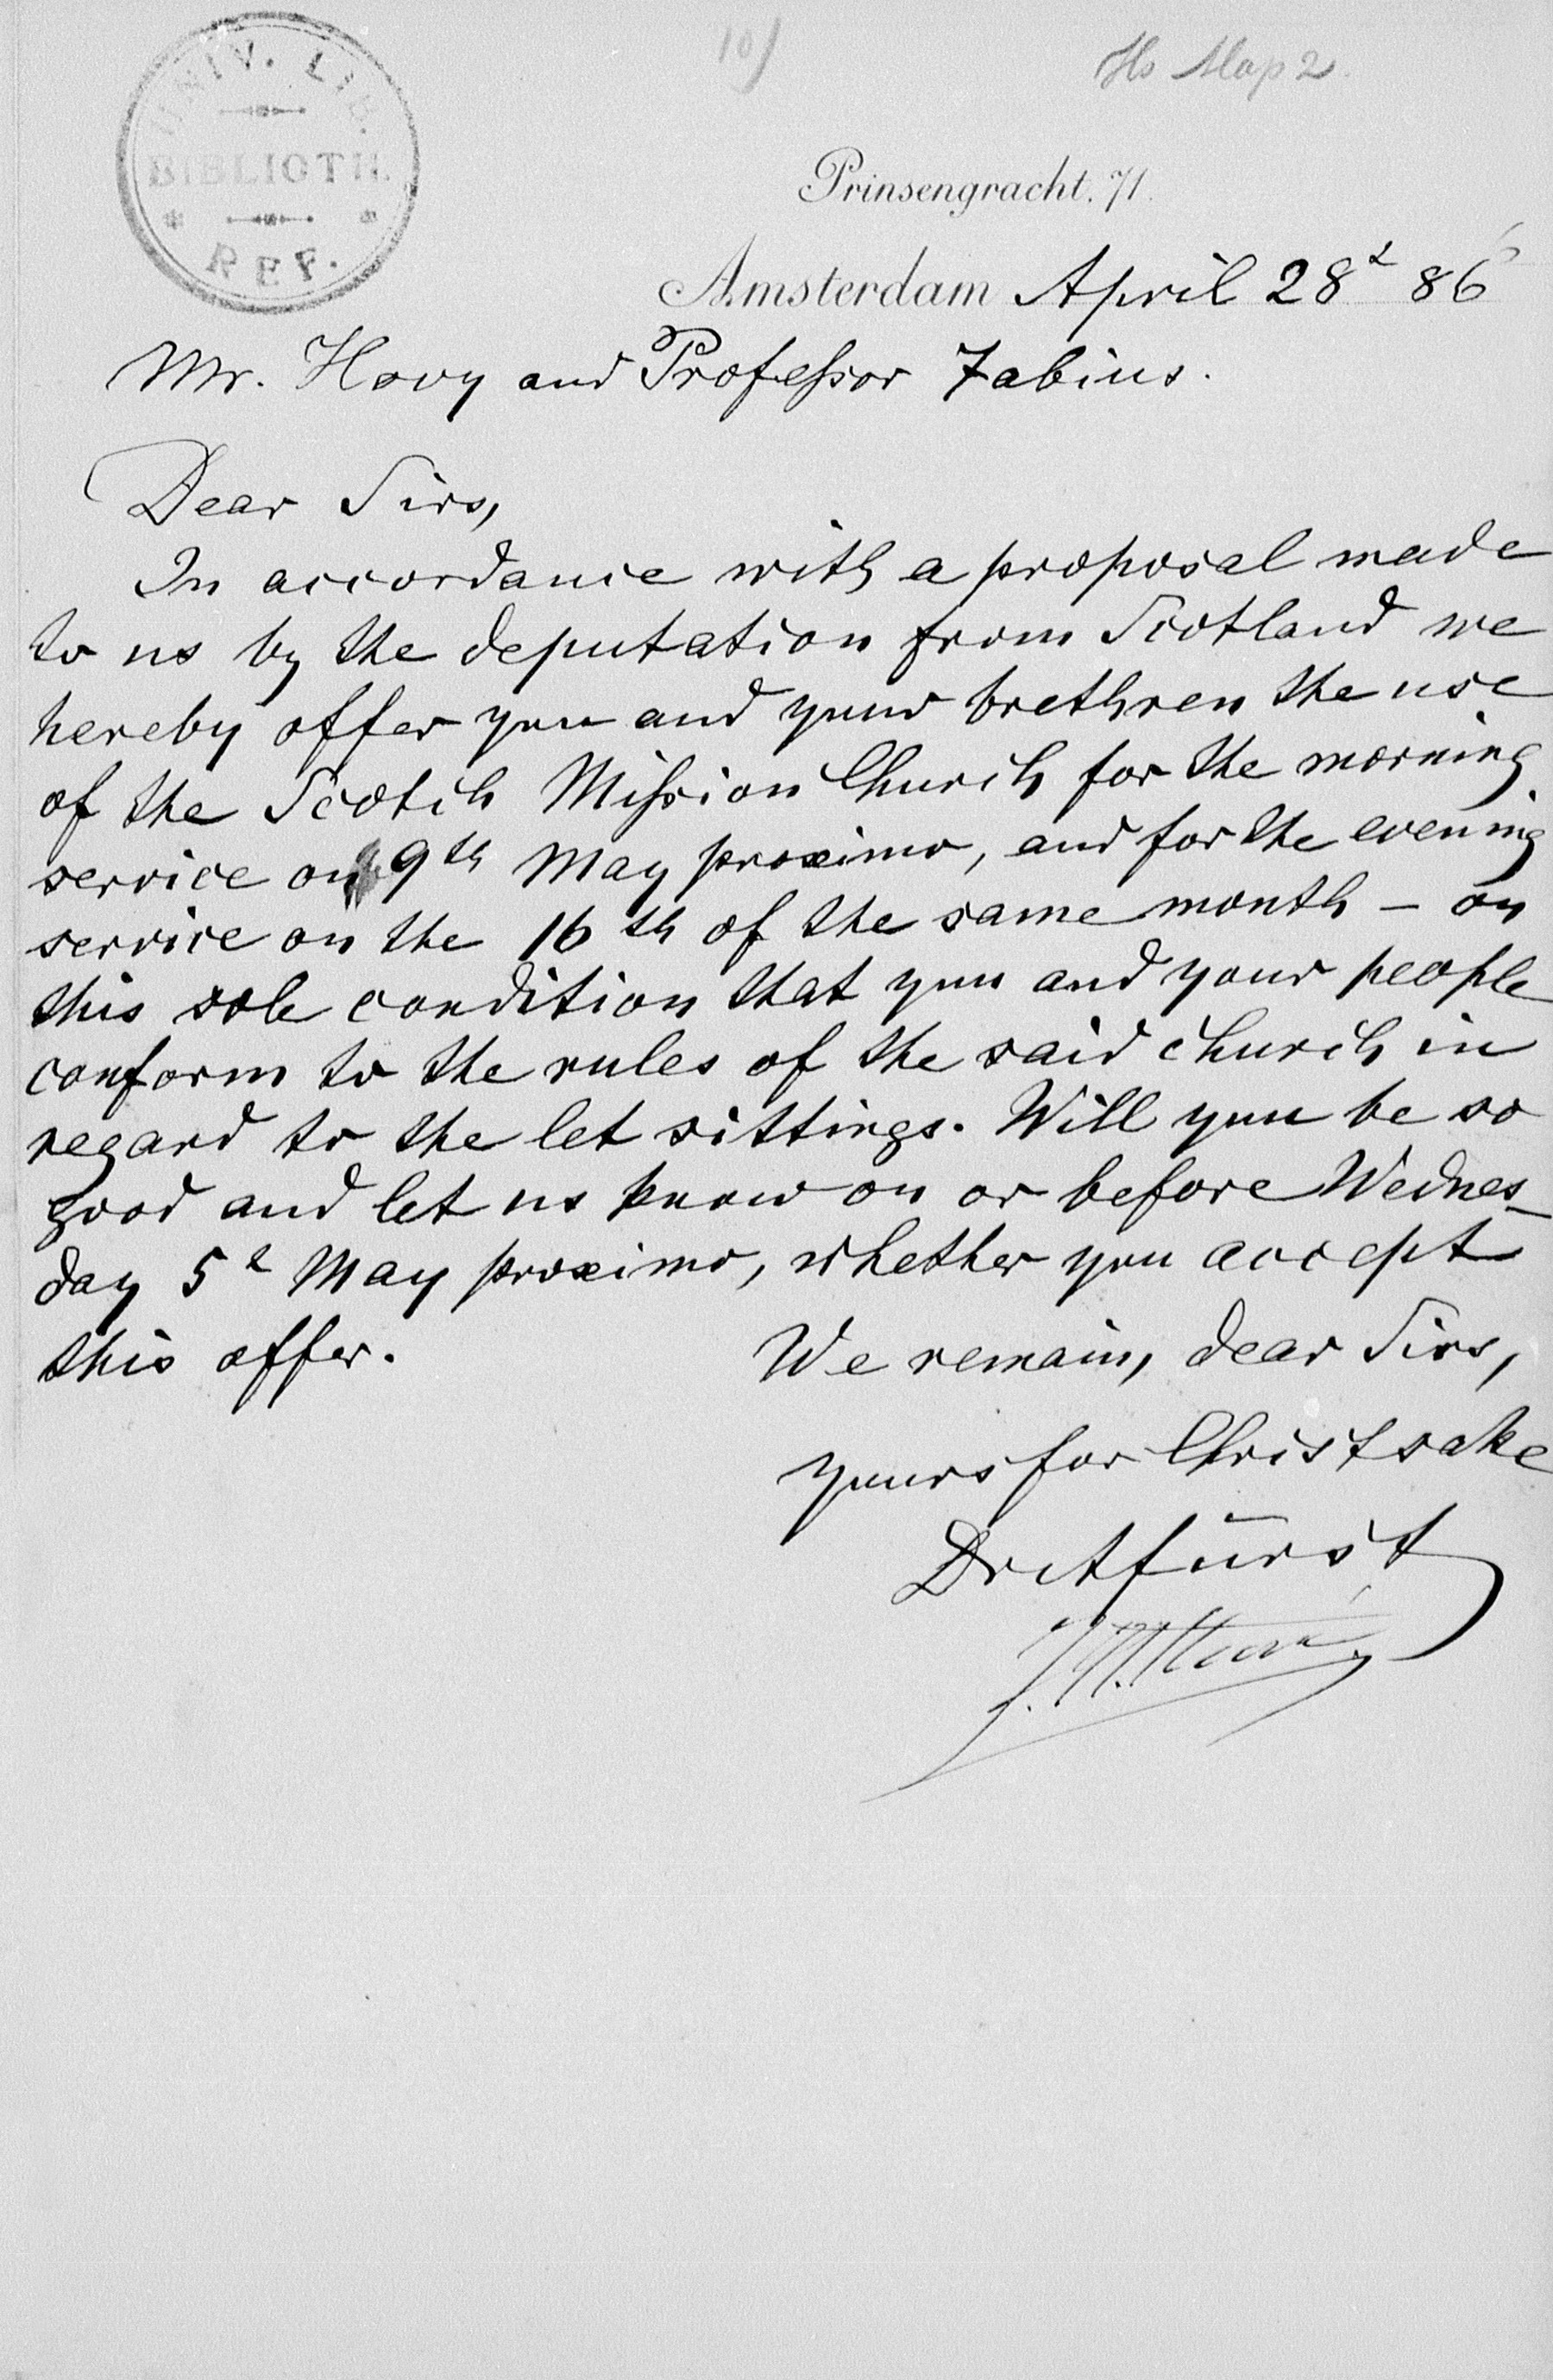 10)
Hs Map 2.
UNIV. LIB.
BIBLIOTH.
REF.
Prinsengracht. 71.
Amsterdam April 28ᵗ 86
Mr. Hovy and Professor Fabius.
Dear Sirs,
In accordance with a proposal made
to us by the deputation from Scotland we
hereby offer you and your brethren the use
of the Scotch Mission Church for the morning
service on 9th May proximo, and for the evening
service on the 16th of the same month – on
this sole condition that you and your people
conform to the rules of the said church in
regard to the let sittings. Will you be so
good and let us know on or before Wednes-
day 5ᵗ May proximo, whether you accept
this offer.
We remain, dear Sirs,
yours for Christ sake